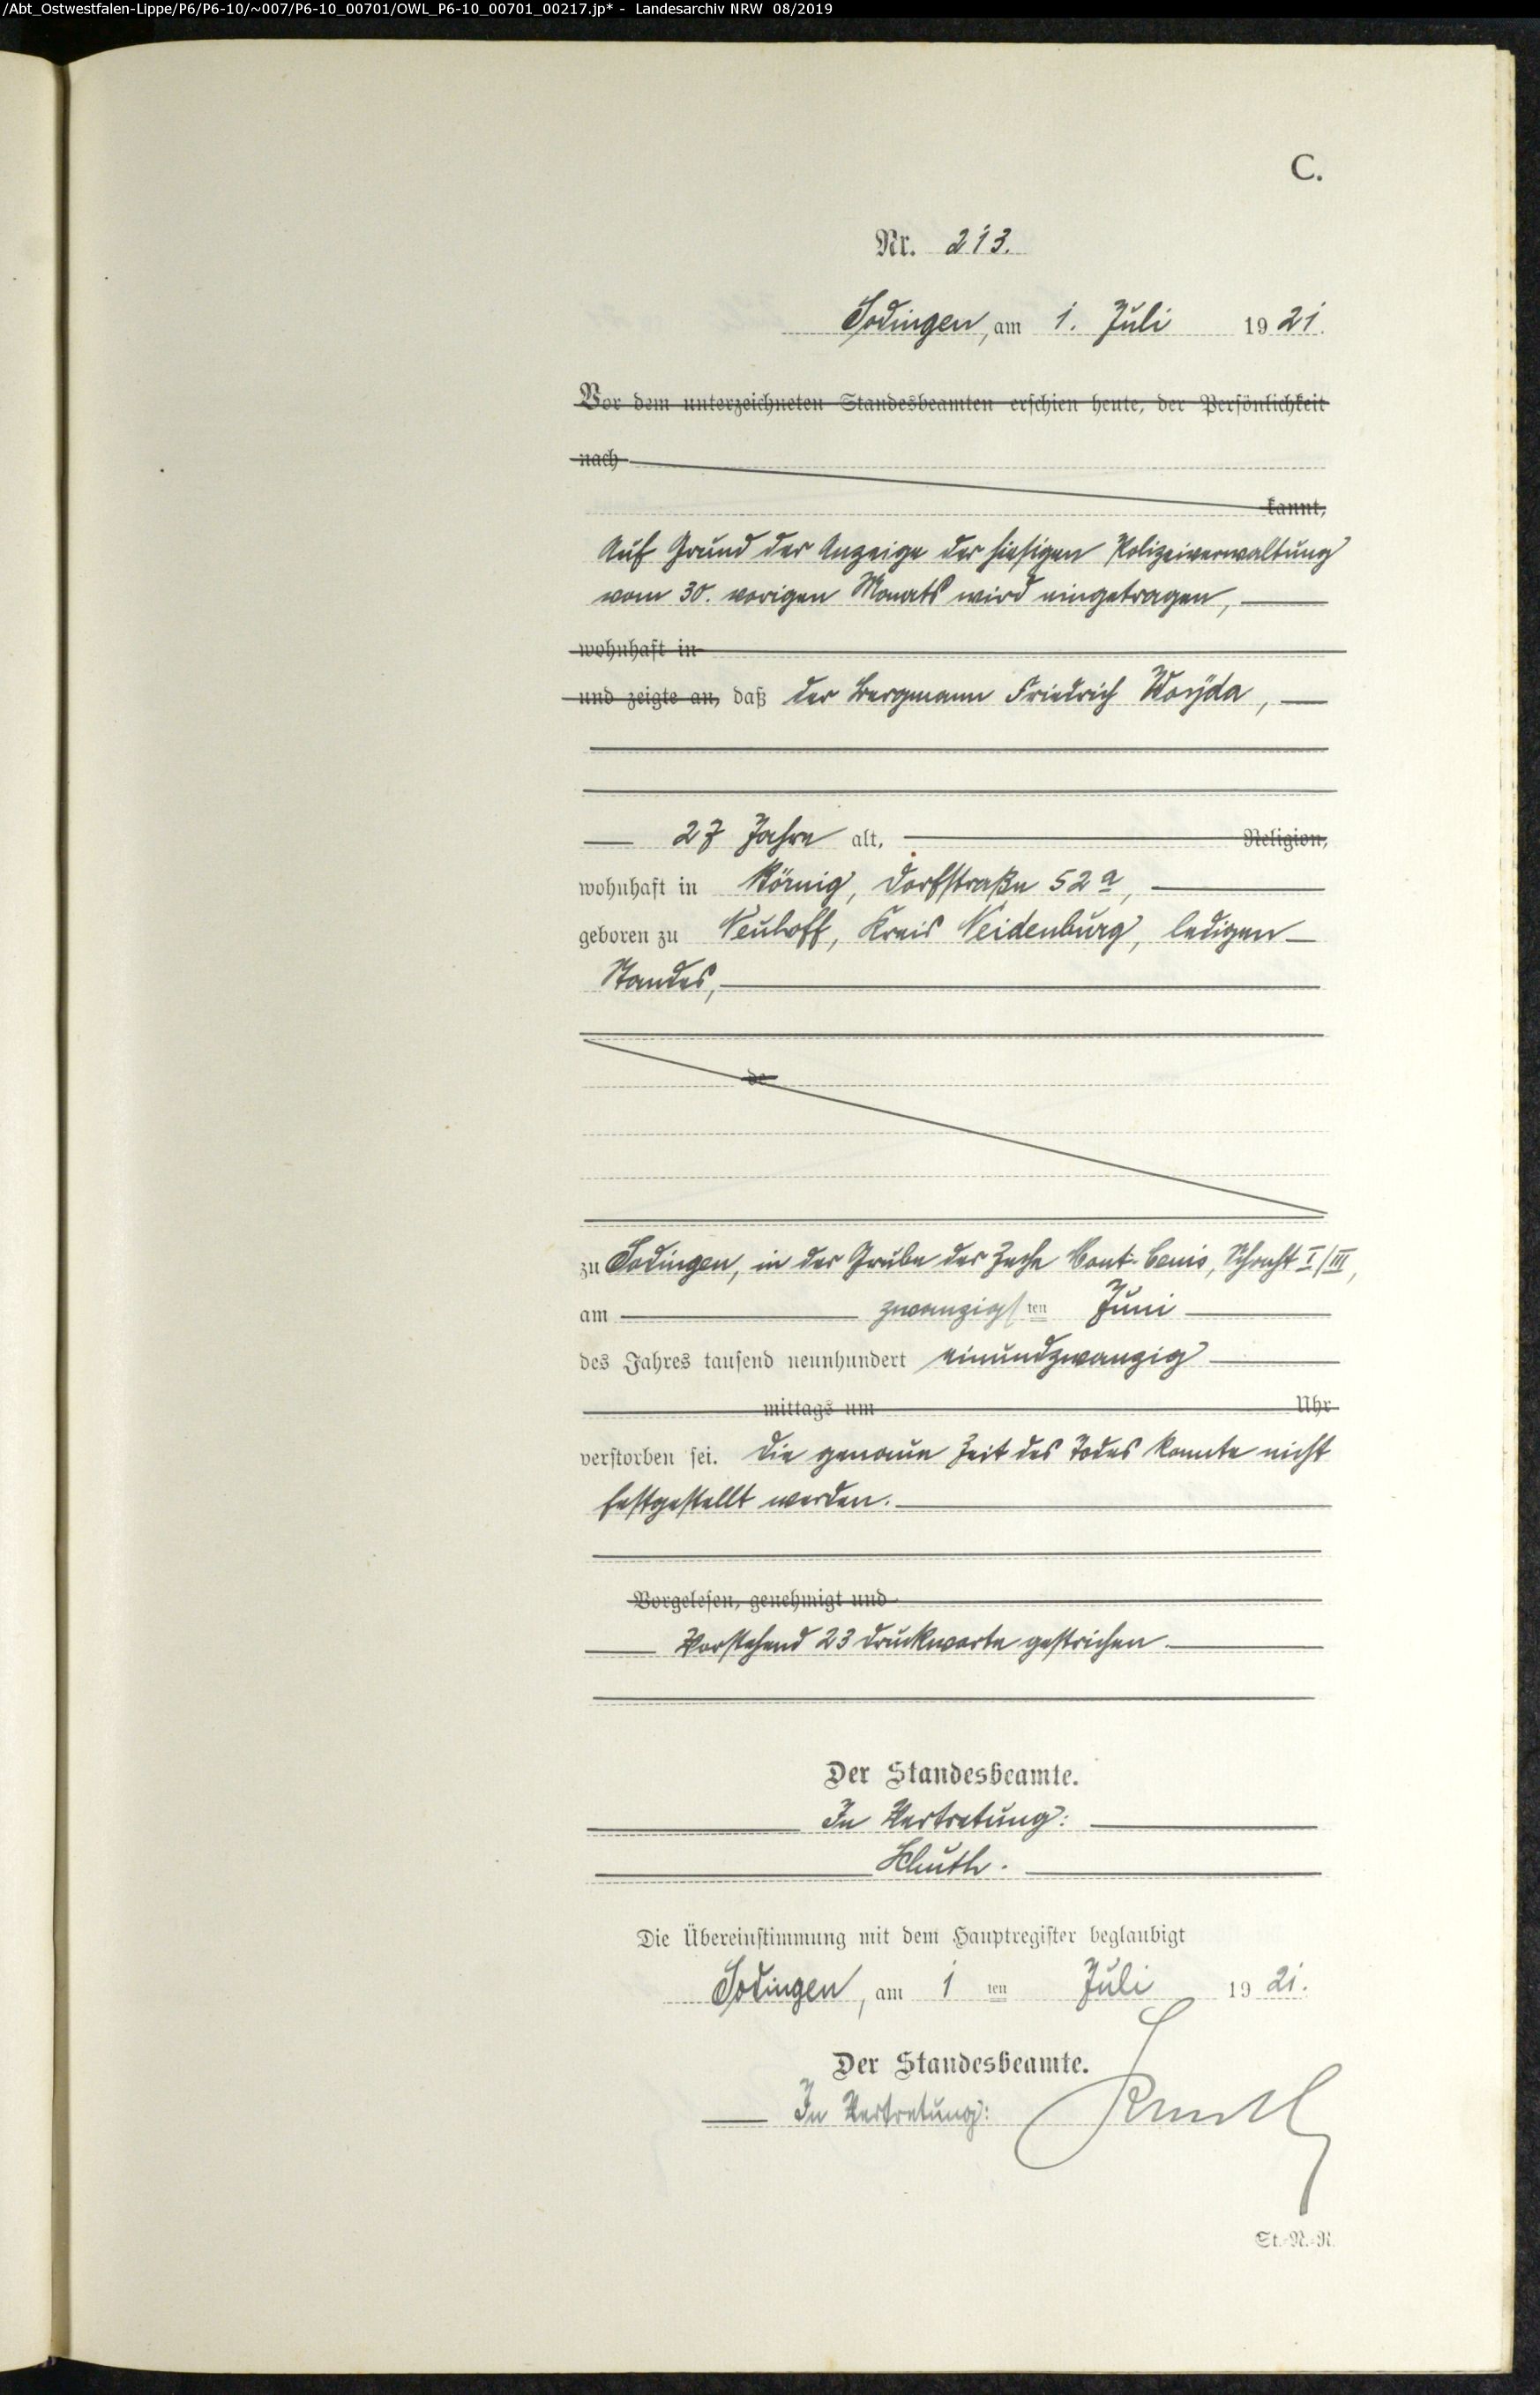 /Abt_Ostwestfalen-Lippe/P6/P6-10/~007/P6-10_00701/OWL_P6-10_00701_00217.jp* - Landesarchiv NRW 08/2019
C.
Nr. 213.
Sodingen, am 1. Juli 1921.
Vor dem unterzeichneten Standesbeamten erschien heute, der Persönlichkeit
nach
kannt,
Auf Grund der Anzeige der hiesigen Polizeiverwaltung
vom 30. vorigen Monats wird eingetragen,
wohnhaft in
und zeigte an, daß der Bergmann Friedrich Woÿda,
27 Jahre alt, Religion,
wohnhaft in Börnig, Dorfstraße 52a,
geboren zu Neuhoff, Kreis Neidenburg, ledigen
Standes,
de
zu Sodingen, in der Grube der Zeche Mont-Cenis, Schacht I/III,
am zwanzigsten Juni
des Jahres tausend neunhundert einundzwanzig
mittags um Uhr
verstorben sei. Die genaue Zeit des Todes konnte nicht
festgestellt werden.
Vorgelesen, genehmigt und
Vorstehend 23 Druckworte gestrichen.
Der Standesbeamte.
In Vertretung:
Die Übereinstimmung mit dem Hauptregister beglaubigt
Sodingen, am 1ten Juli 1921.
Der Standesbeamte.
In Vertretung:
St.-N.-R.